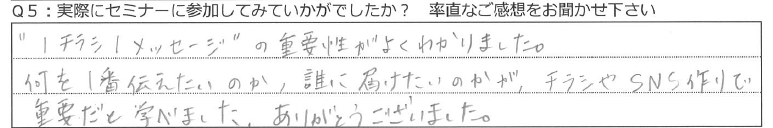 Q5：実際にセミナーに参加してみていかがでしたか？　率直なご感想をお聞かせ下さい
"1チラシ1メッセージ"の重要性がよくわかりました。
何を1番伝えたいのか、誰に届けたいのかが、チラシやSNS作りで
重要だと学べました。ありがとうございました。